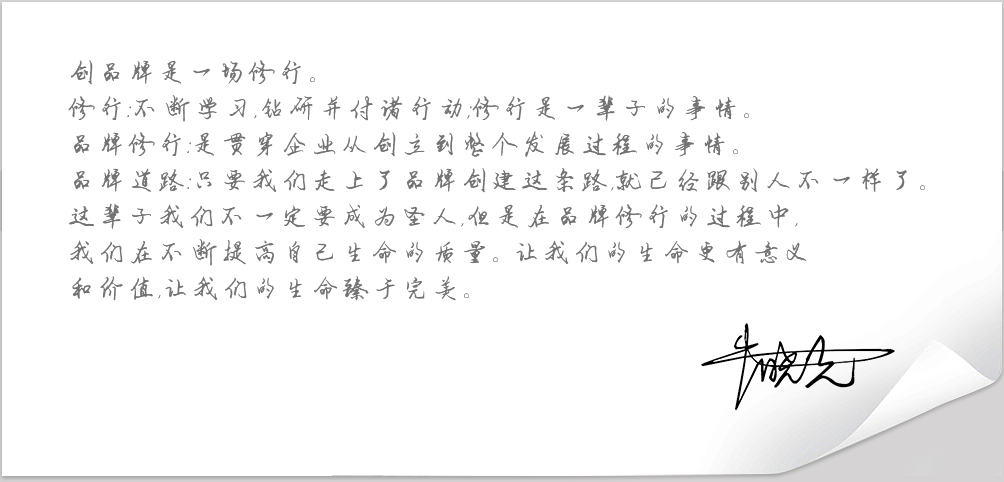 创品牌是一场修行。
修行:不断学习,钻研并付诸行动;修行是一辈子的事情。
品牌修行:是贯穿企业从创立到整个发展过程的事情。
品牌道路:只要我们走上了品牌创建这条路,就已经跟别人不一样了。
这辈子我们不一定要成为圣人,但是在品牌修行的过程中,
我们在不断提高自己生命的质量。让我们的生命更有意义
和价值,让我们的生命臻于完美。